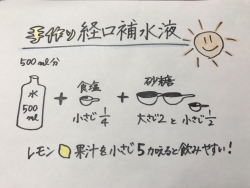 手作り経口補水液
500ml分
水
500
ml
+
食塩
小さじ1/4
+
砂糖
大さじ2と小さじ1/2
レモン果汁を小さじ5加えると飲みやすい!